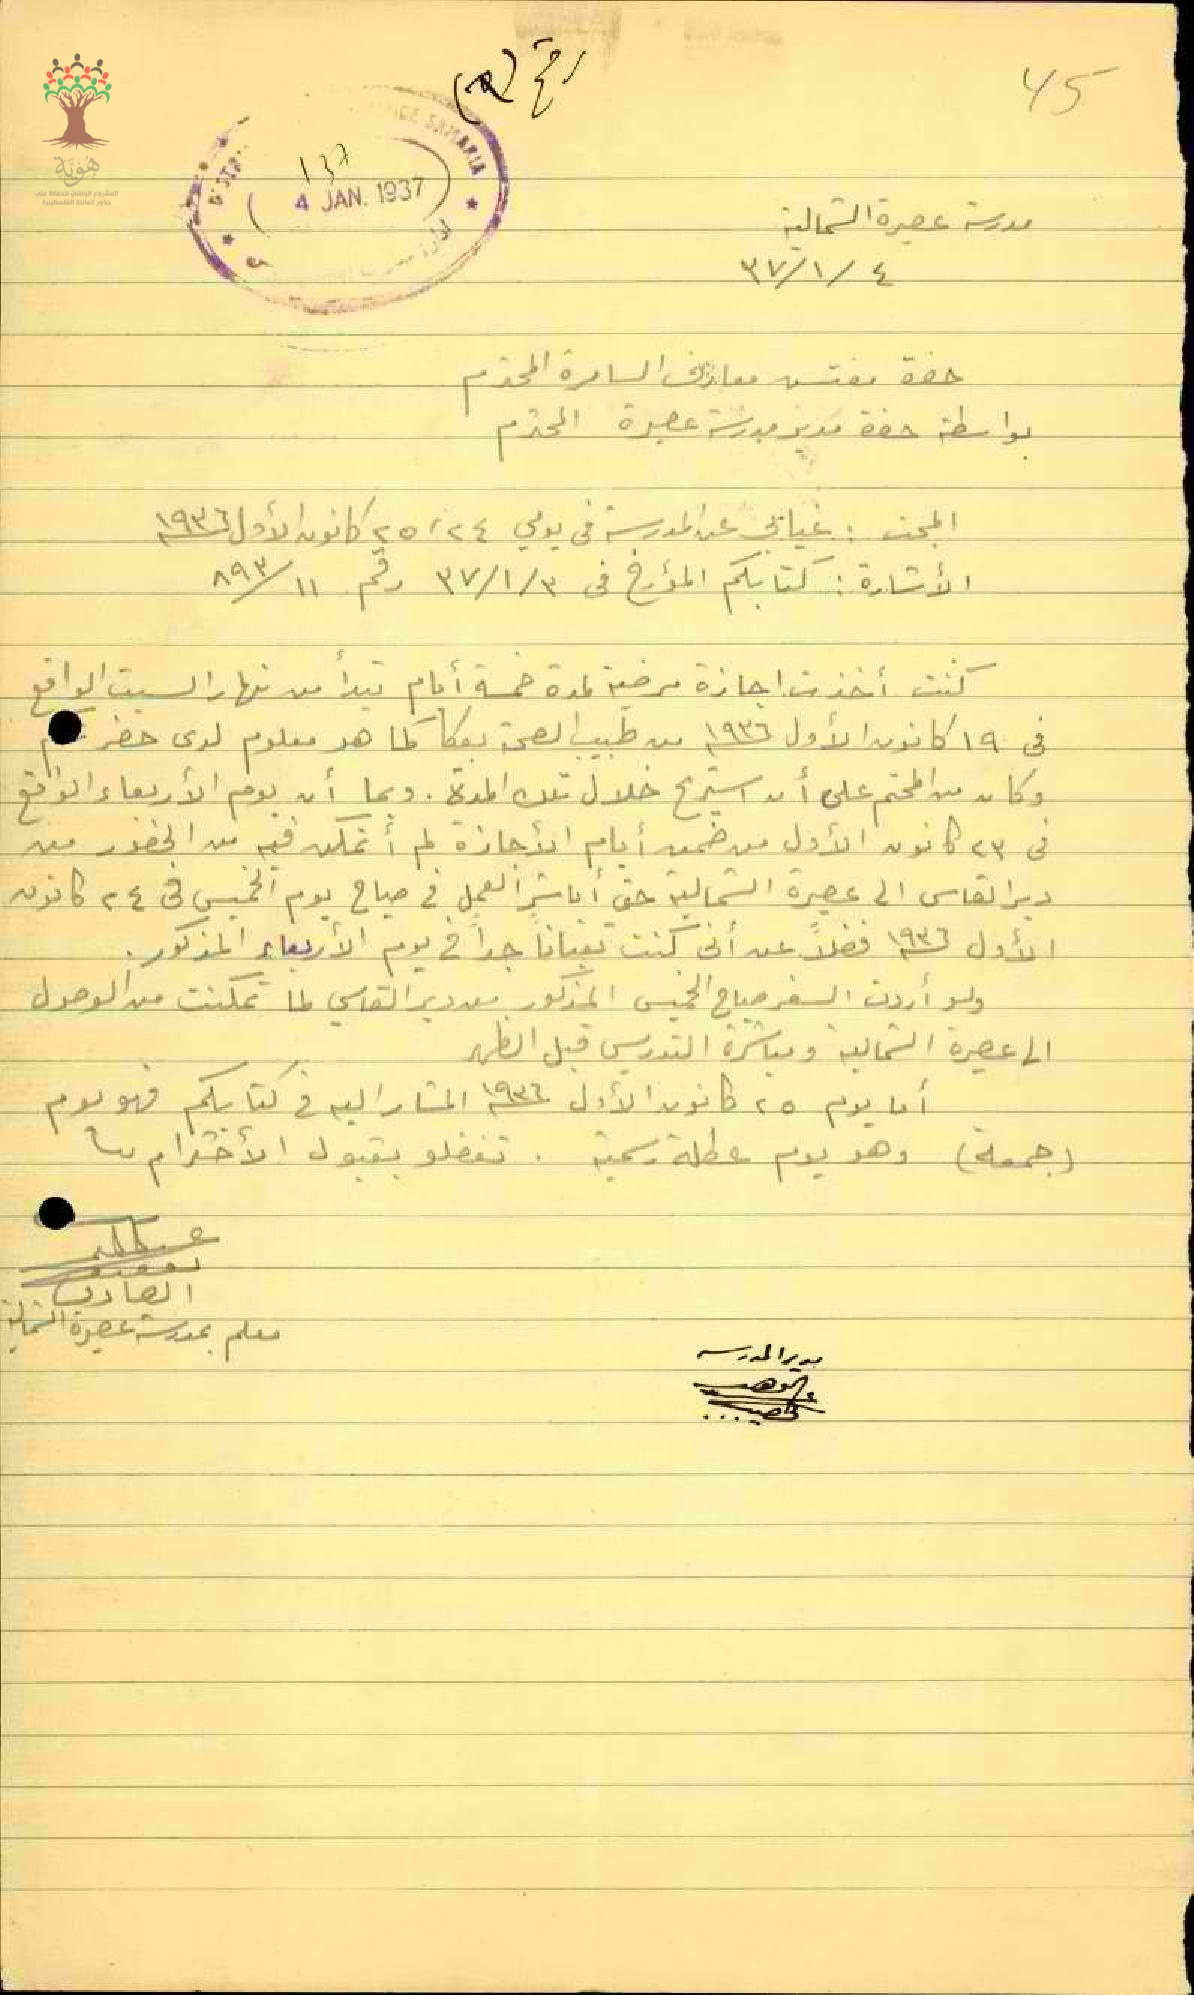 هُوِيَّة
المشروع الوطني للحفاظ على
جذور العائلة الفلسطينية
رقم
45
SAMARIA
137
4 JAN. 1937
مدرسة عصيرة الشمالية
٤ /١/ ٣٧
حضرة مفتش معارف السامرة المحترم
بواسطة حضرة مدير مدرسة عصيرة المحترم
المبحث : غيابي عن المدرسة في يومي ٢٤، ٢٥ كانون الأول ١٩٣٦
الأشارة : كتابكم المؤرخ في ٣/ ١/ ٣٧ رقم ١١/ ٨٩٣
كنت أخذت اجازة مرضية لمدة خمسة أيام تبدأ من نهار السبت الواقع
في ١٩ كانون الأول ١٩٣٦ من طبيب الصحة بعكا كما هو معلوم لدى حضرتكم
وكان من المحتم علي أن استريح خلال تلك المدة . وبما أن يوم الأربعاء الواقع
في ٢٣ كانون الأول من ضمن أيام الأجازة لم أتمكن فيه من الحضور من
دير القاسي الى عصيرة الشمالية حتى أباشر العمل في صباح يوم الخميس في ٢٤ كانون
الأول ١٩٣٦ فضلاً عن أني كنت تعباناً جداً في يوم الأربعاء المذكور .
ولو أردت السفر صباح الخميس المذكور من دير القاسي لما تمكنت من الوصول
الى عصيرة الشمالية ومباشرة التدريس قبل الظهر
أما يوم ٢٥ كانون الأول ١٩٣٦ المشار اليه في كتابكم فهو يوم
(جمعة) وهو يوم عطلة رسمية . تفضلو بقبول الأحترام
معلم بمدرسة عصيرة الشمالية
مدير المدرسه